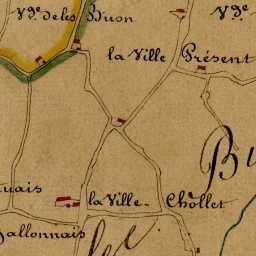 Vge de les Buon
Vge
la Ville Présent
Bu
la Ville - Chollet
uais
allonnais